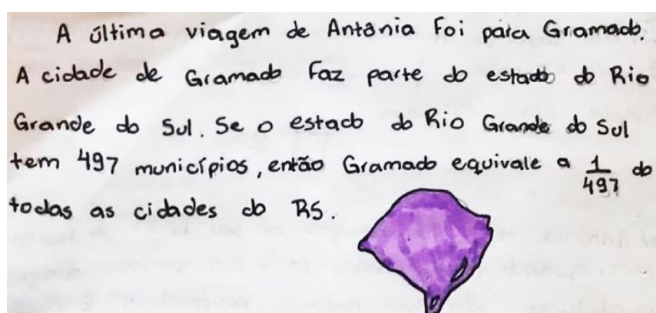 A última viagem de Antônia foi para Gramado.
A cidade de Gramado faz parte do estado do Rio
Grande do Sul. Se o estado do Rio Grande do Sul
tem 497 municípios, então Gramado equivale a 1/497 do
todas as cidades do RS.